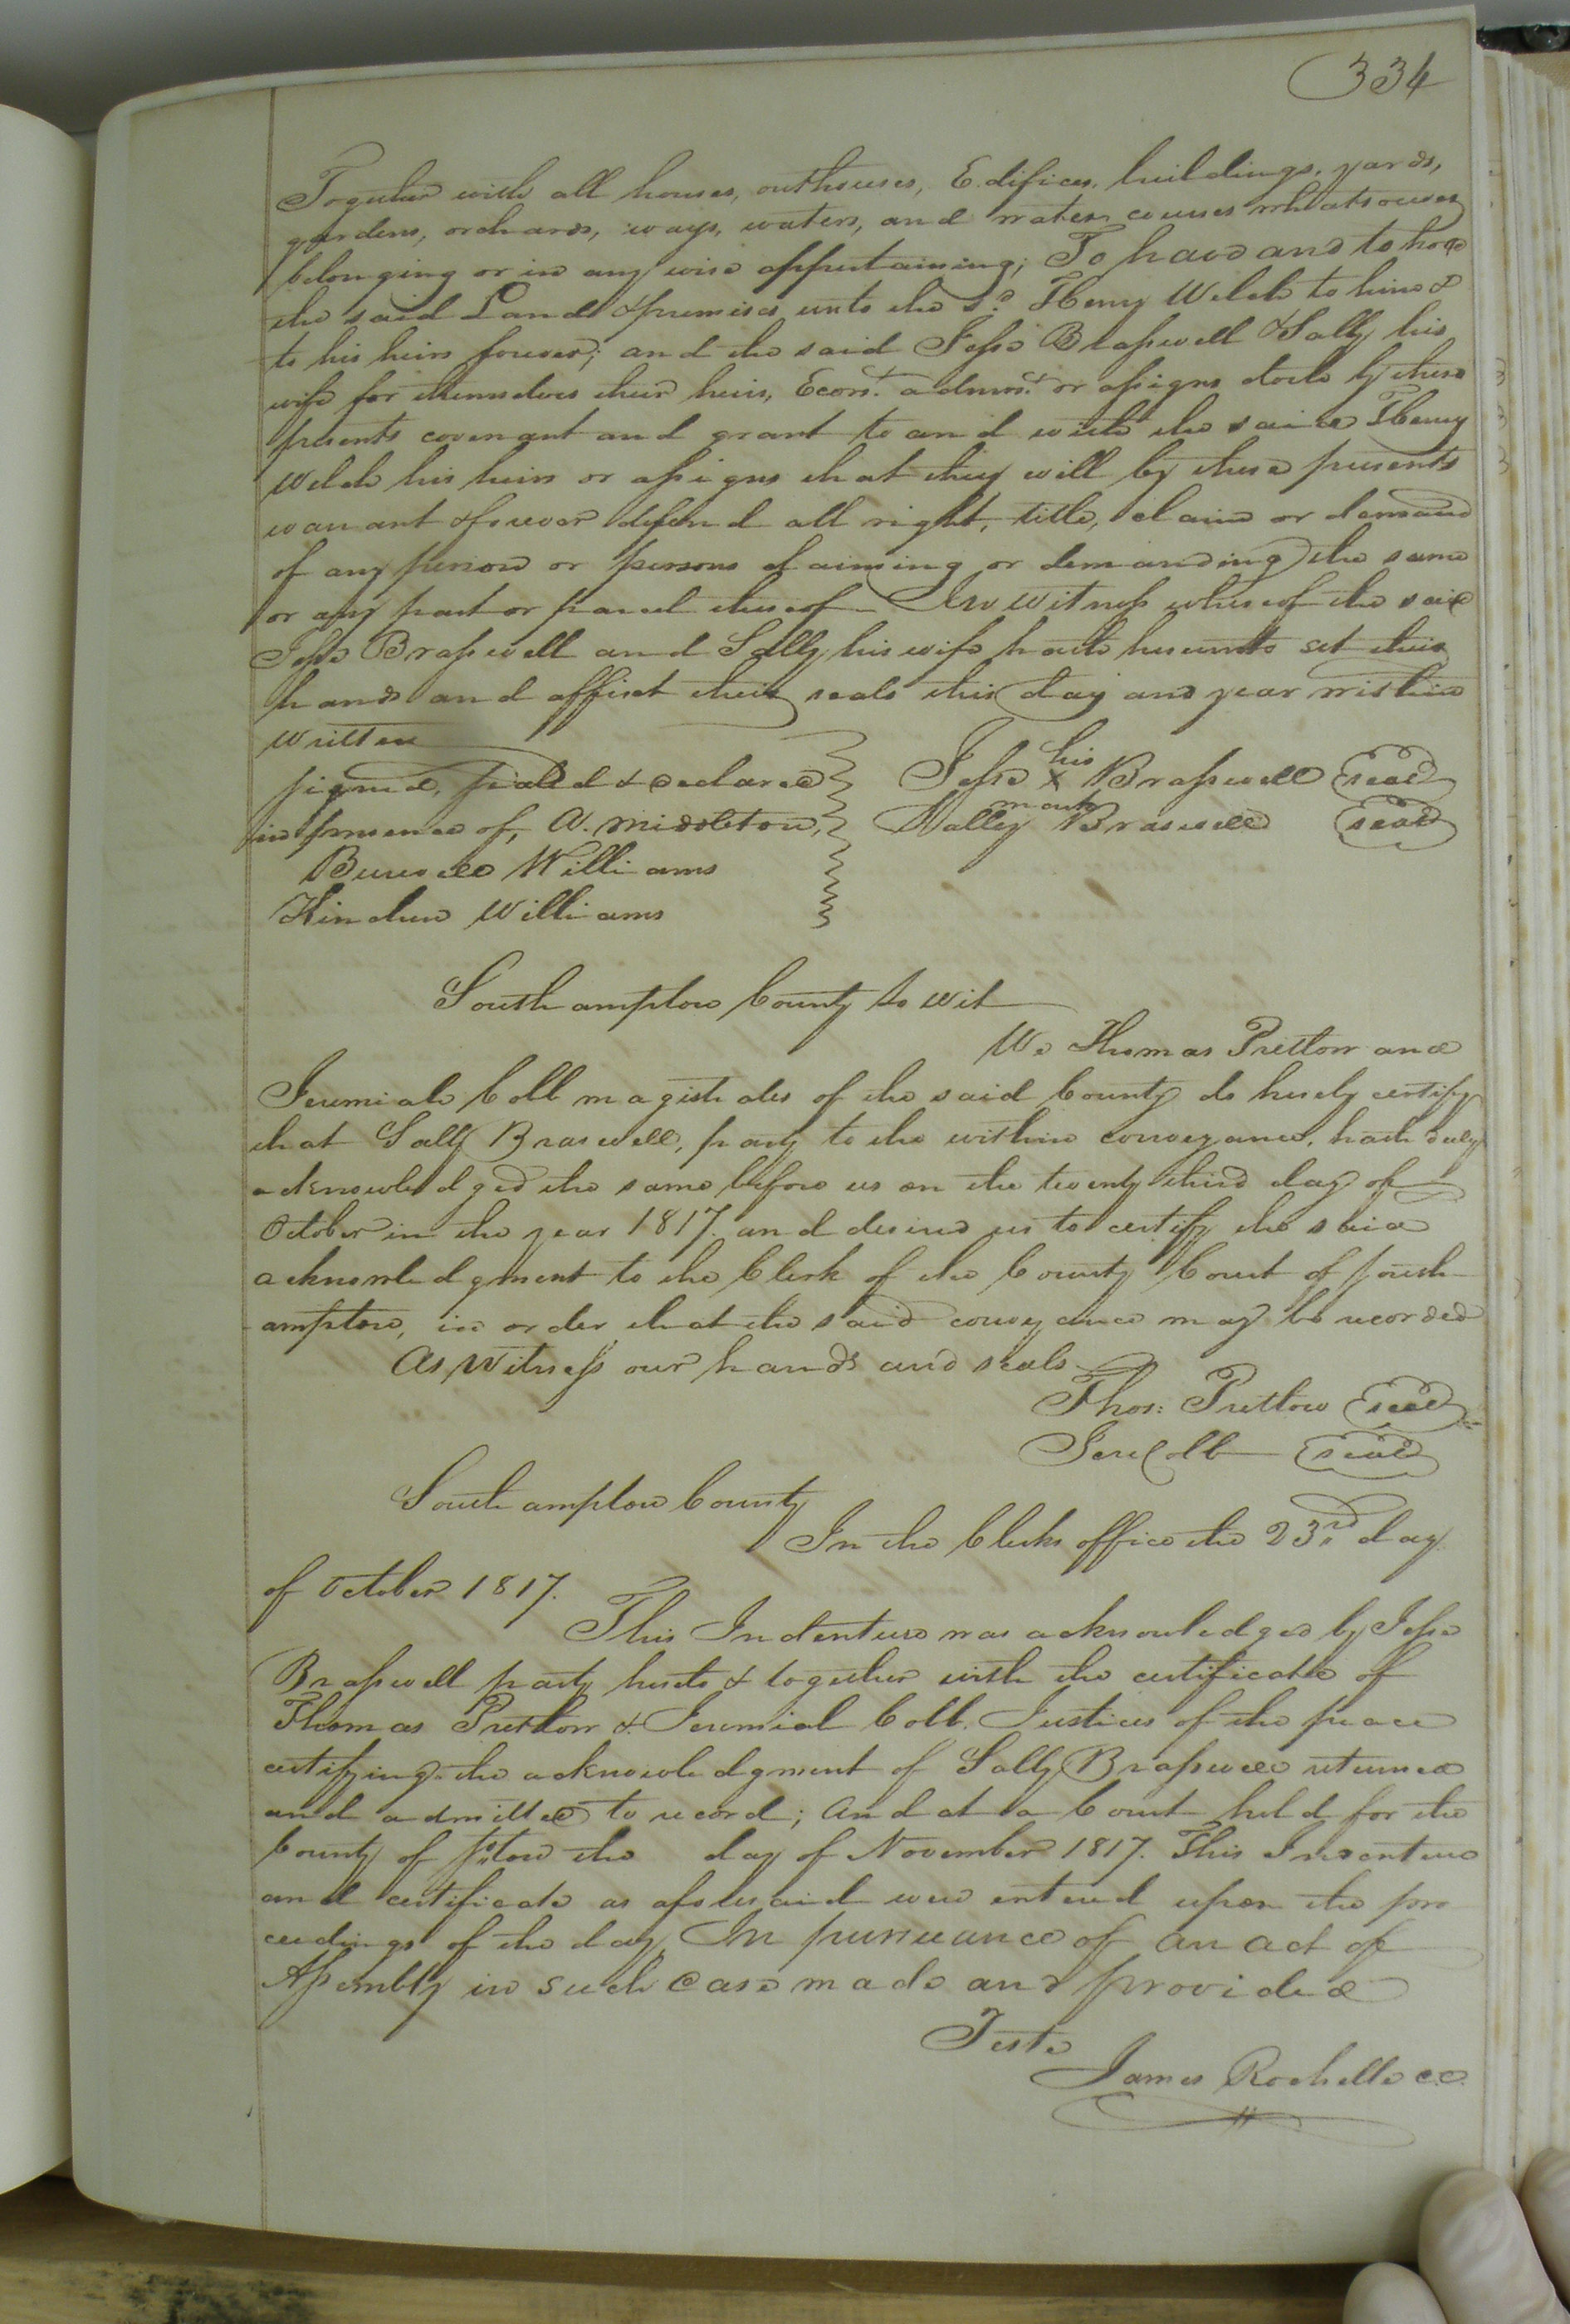 334
Together with all houses, outhouses, Edifices, buildings, yards,
gardens, orchards, ways, waters, and water courses whatsoever
belonging or in any wise appertaining; To have and to hold
the said Land & premises unto the sd. Henry Welch to him &
to his heirs forever; and the said Jesse Brasswell & Sally his
wife for themselves their heirs, Ecors. admors. or assigns doth by these
presents covenant and grant to and with the said Henry
Welch his heirs or assigns that they will by these presents
warrant & forever defend all right, title, claim or demand
of any person or persons claiming or demanding the same
or any part or parcel thereof In witness whereof the said
Jesse Brasswell and Sally his wife hath hereunto set their
hands and affixet their seals this day and year within
written
signed, sealed & declared
in presence of, A. Middleton,
Burwell Williams
Kindred Williams
Jesse his X mark Brasswell seal
Salley Braswell seal
Southampton County to wit
We Thomas Pretlow and
Jeremiah Cobb magistrates of the said County do hereby certify
that Sally Braswell, party to the within conveyance, hath duly
acknowledged the same before us on the twenty third day of
October in the year 1817. and desired us to certify the said
acknowledgment to the Clerk of the County Court of South
ampton, in order that the said conveyance may be recorded
As Witness our hands and seals
Thos: Pretlow seal
Jere Cobb seal
Southampton County
In the Clerks office the 23rd day
of October 1817.
This Indenture was acknowledged by Jesse
Brasswell party hereto & together with the certificate of
Thomas Pretlow & Jeremiah Cobb. Justices of the peace
certifying the acknowledgment of Sally Brasswell returned
and admitted to record; And at a Court held for the
County of Ston the day of November 1817. This Indenture
and certificate as aforesaid were entered upon the pro
ceedings of the day, In pursuance of an act of
Assembly in such case made and provided
Teste
James Rochelle c.c.